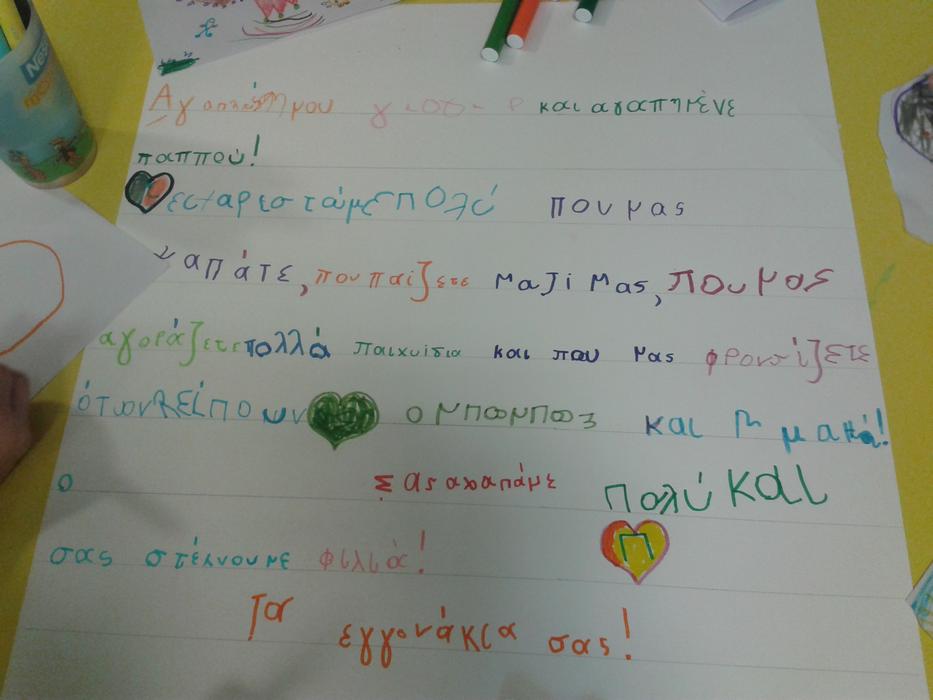 Αγαπημένη μου γιαγιά και αγαπημένε
παππού!
ευχαριστάμε πολύ που μας
αγαπάτε, που παίζετε μαζί μας, που μας
αγοράζετε πολλά παιχνίδια και που μας φροντίζετε
όταν λείπουν ο μπαμπας και η μαμά!
Σας αγαπάμε πολύ και
σας στέλνουμε φιλιά!
Π
Τα εγγονάκια σας!